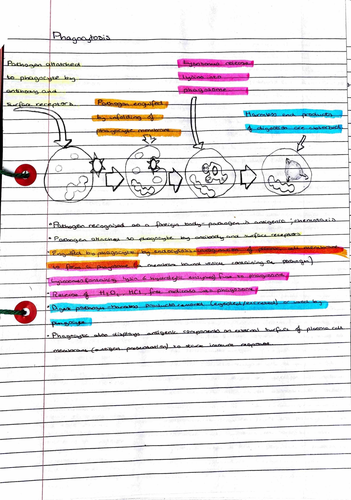 Phagocytosis
Pathogen attached
to phagocyte by
antibody and
surface receptors.
Pathogen engulfed
by infolding of
phagocytic membrane
Lysosomes release
lysins into
phagosome
Harmless end products
of digestion are
• Pathogen recognised as a foreign body antigenic chemotaxis
• Pathogen attaches to phagocyte by antibody and surface receptors
• Engulfed by phagocyte by endocytosis of plasma cell membrane
to form a phagosome membrane bound vesicle containing the pathogen)
• Lysosomes containing lysins & hydrolytic enzymes fuse to phagosome
• Release of H2O2, HCl, free radicals into phagosome
• products (egested/excreted) or used by
phagocyte
• Phagocyte also displays antigenic components on external surface of plasma cell
membrane (antigen presentation) to drive immune response